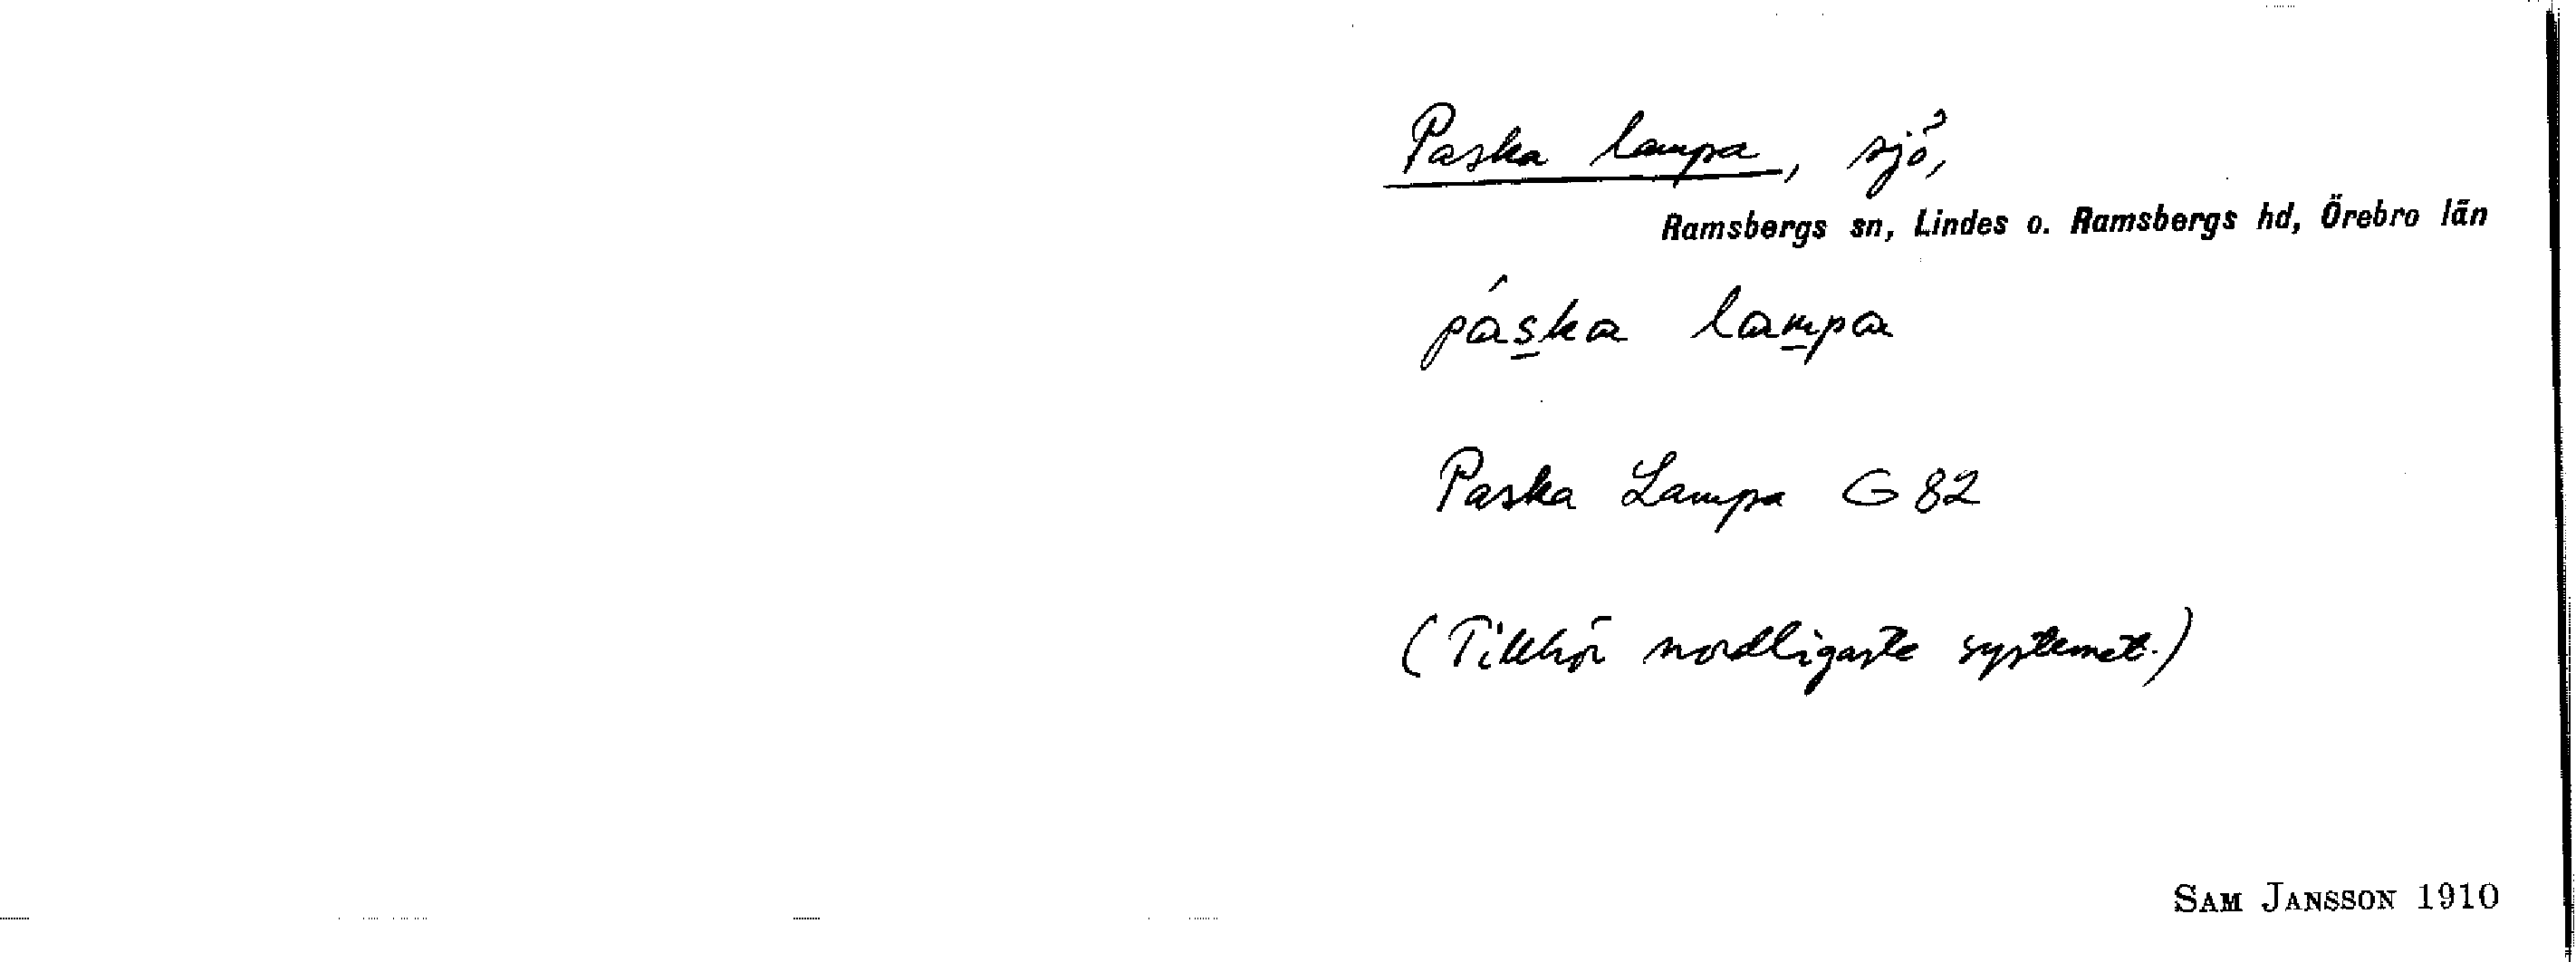 Paska lampa, sjö,
Ramsbergs sn, Lindes o. Ramsbergs hd, Örebro län
páska lampa
Paska Lampa G 82
(Tillhör nordligaste systemet.)
SAM JANSSON 1910